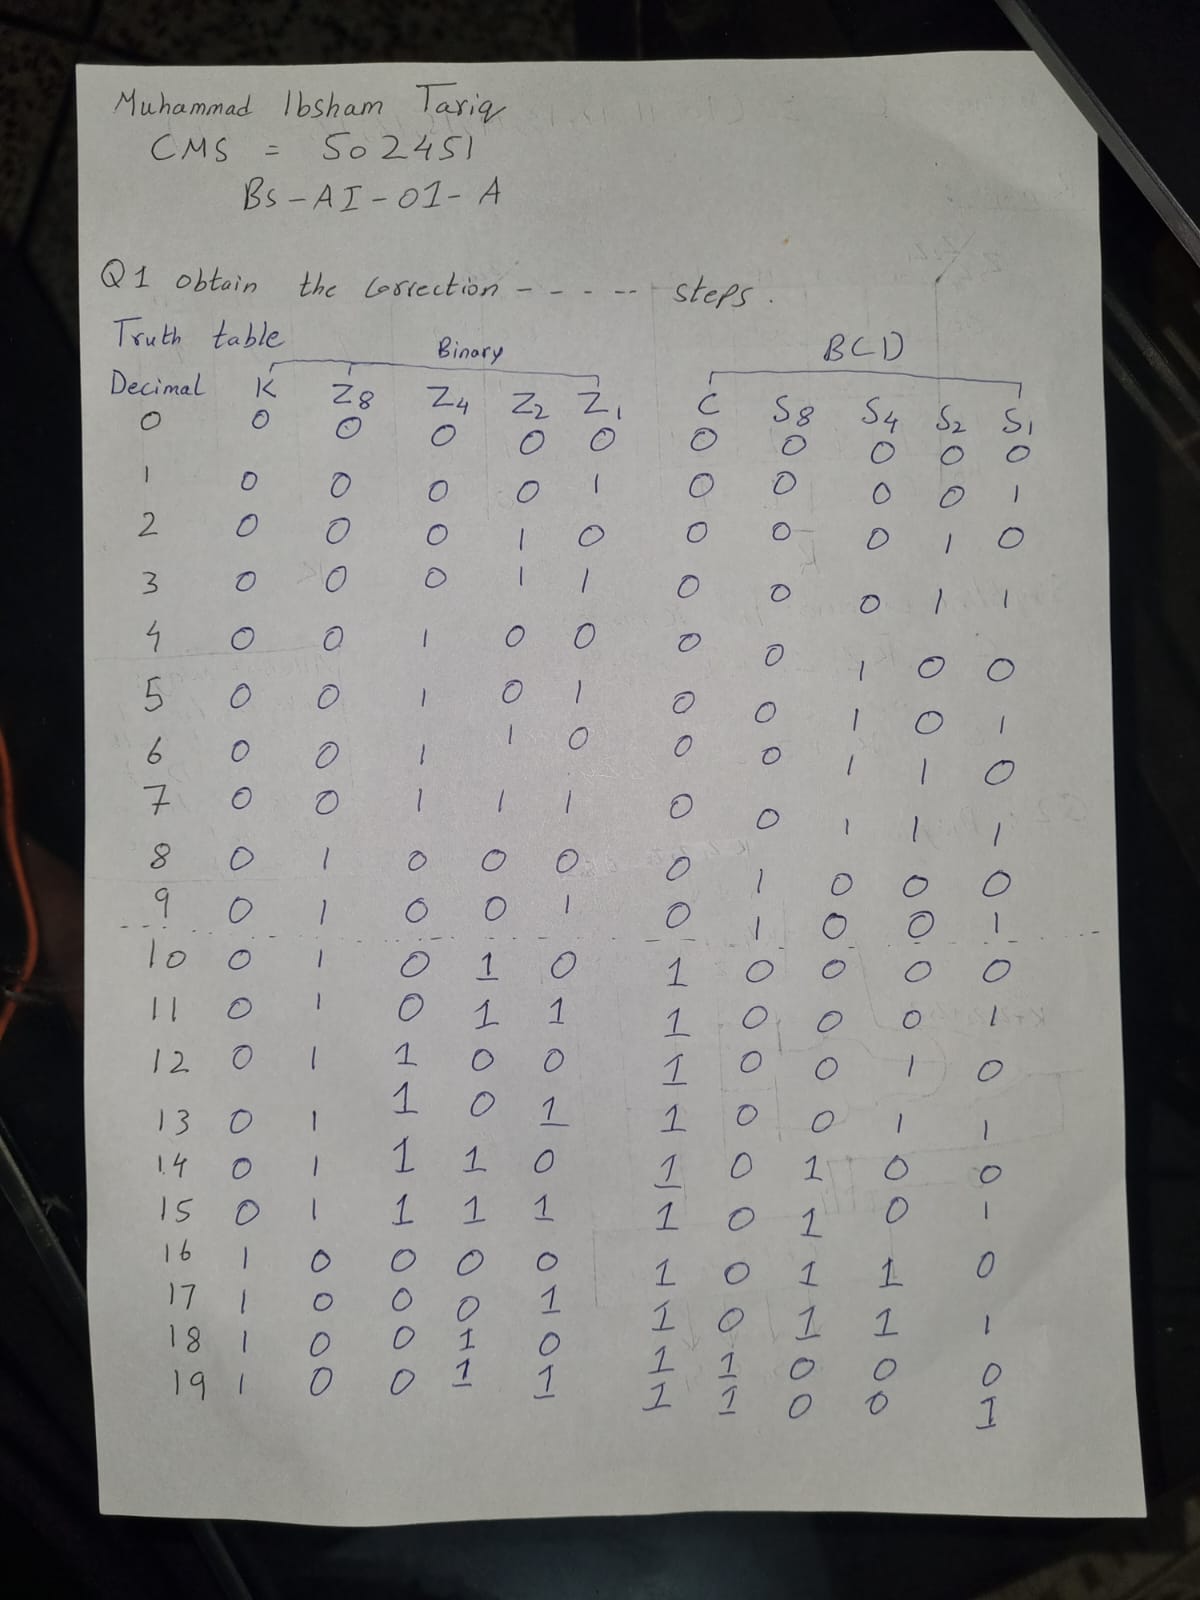 Muhammad Ibsham Tariq
CMS = 502451
BS-AI-01-A
Q1 obtain the correction ----- steps.
Truth table Binary BCD
Decimal K Z8 Z4 Z2 Z1 C S8 S4 S2 S1
0 0 0 0 0 0 0 0 0 0 0
1 0 0 0 0 1 0 0 0 0 1
2 0 0 0 1 0 0 0 0 1 0
3 0 0 0 1 1 0 0 0 1 1
4 0 0 1 0 0 0 0 1 0 0
5 0 0 1 0 1 0 0 1 0 1
6 0 0 1 1 0 0 0 1 1 0
7 0 0 1 1 1 0 0 1 1 1
8 0 1 0 0 0 0 1 0 0 0
9 0 1 0 0 1 0 1 0 0 1
10 0 1 0 1 0 1 0 0 0 0
11 0 1 0 1 1 1 0 0 0 1
12 0 1 1 0 0 1 0 0 1 0
13 0 1 1 0 1 1 0 0 1 1
14 0 1 1 1 0 1 0 1 0 0
15 0 1 1 1 1 1 0 1 0 1
16 1 0 0 0 0 1 0 1 1 0
17 1 0 0 0 1 1 0 1 1 1
18 1 0 0 1 0 1 1 0 0 0
19 1 0 0 1 1 1 1 0 0 1